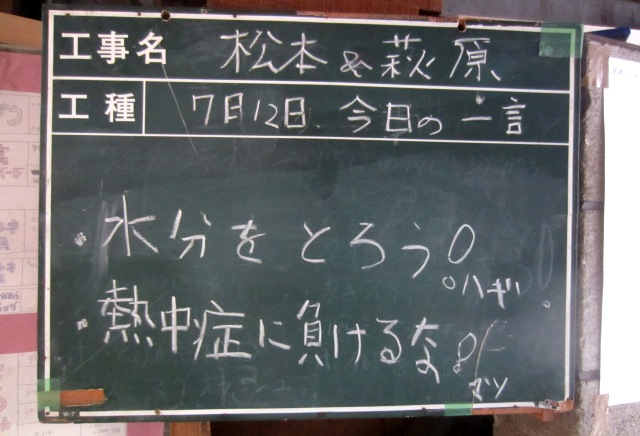 工事名 松本&萩原
工種 7月12日、今日の一言
水分をとろう!
ハギ
熱中症に負けるな!
マツ
W-7